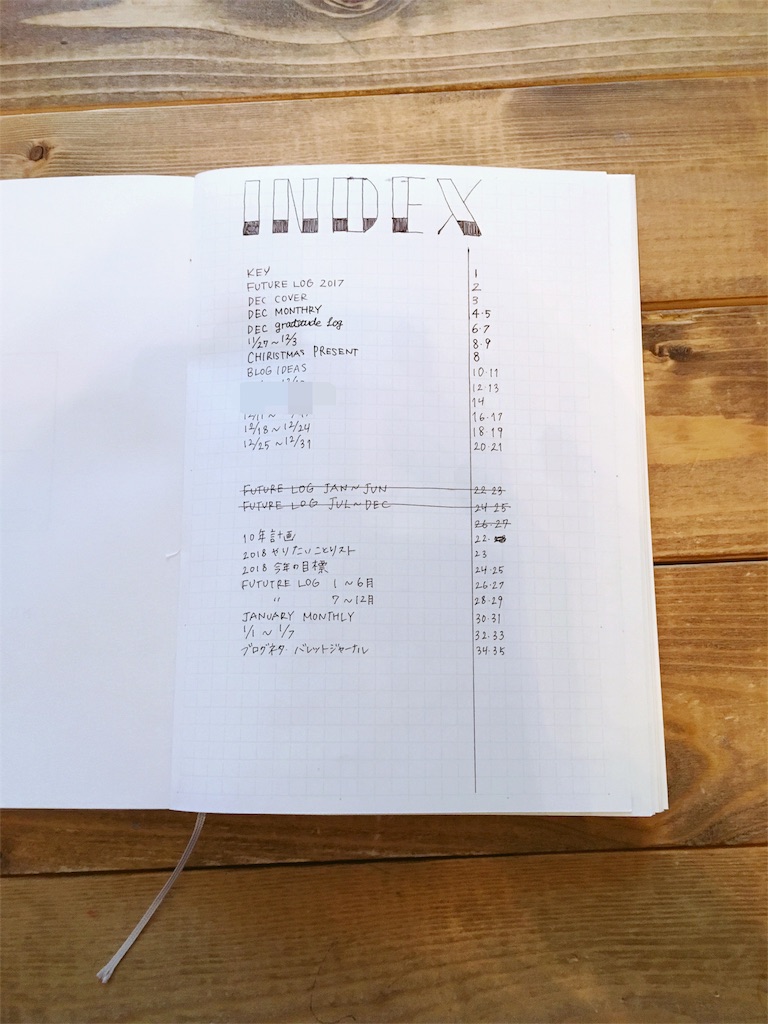 INDEX
KEY 1
FUTURE LOG 2017 2
DEC COVER 3
DEC MONTHRY 4·5
DEC gratitude log 6·7
11/27~12/3 8·9
CHIRISTMAS PRESENT 8
BLOG IDEAS 10·11
12·13
14
16·17
12/18~12/24 18·19
12/25~12/31 20·21
FUTURE LOG JAN~JUN 22·23
FUTURE LOG JUL~DEC 24·25
26·27
10年計画 22·
2018 やりたいことリスト 23
2018 今年の目標 24·25
FUTUTRE LOG 1~6月 26·27
〃 7~12月 28·29
JANUARY MONTHLY 30·31
1/1~1/7 32·33
ブログネタ・バレットジャーナル 34·35